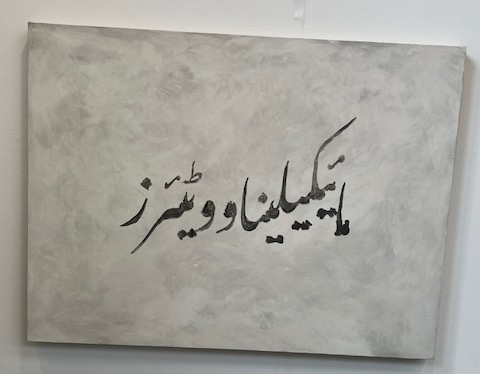 مائیکیلینا ووٹیئرز